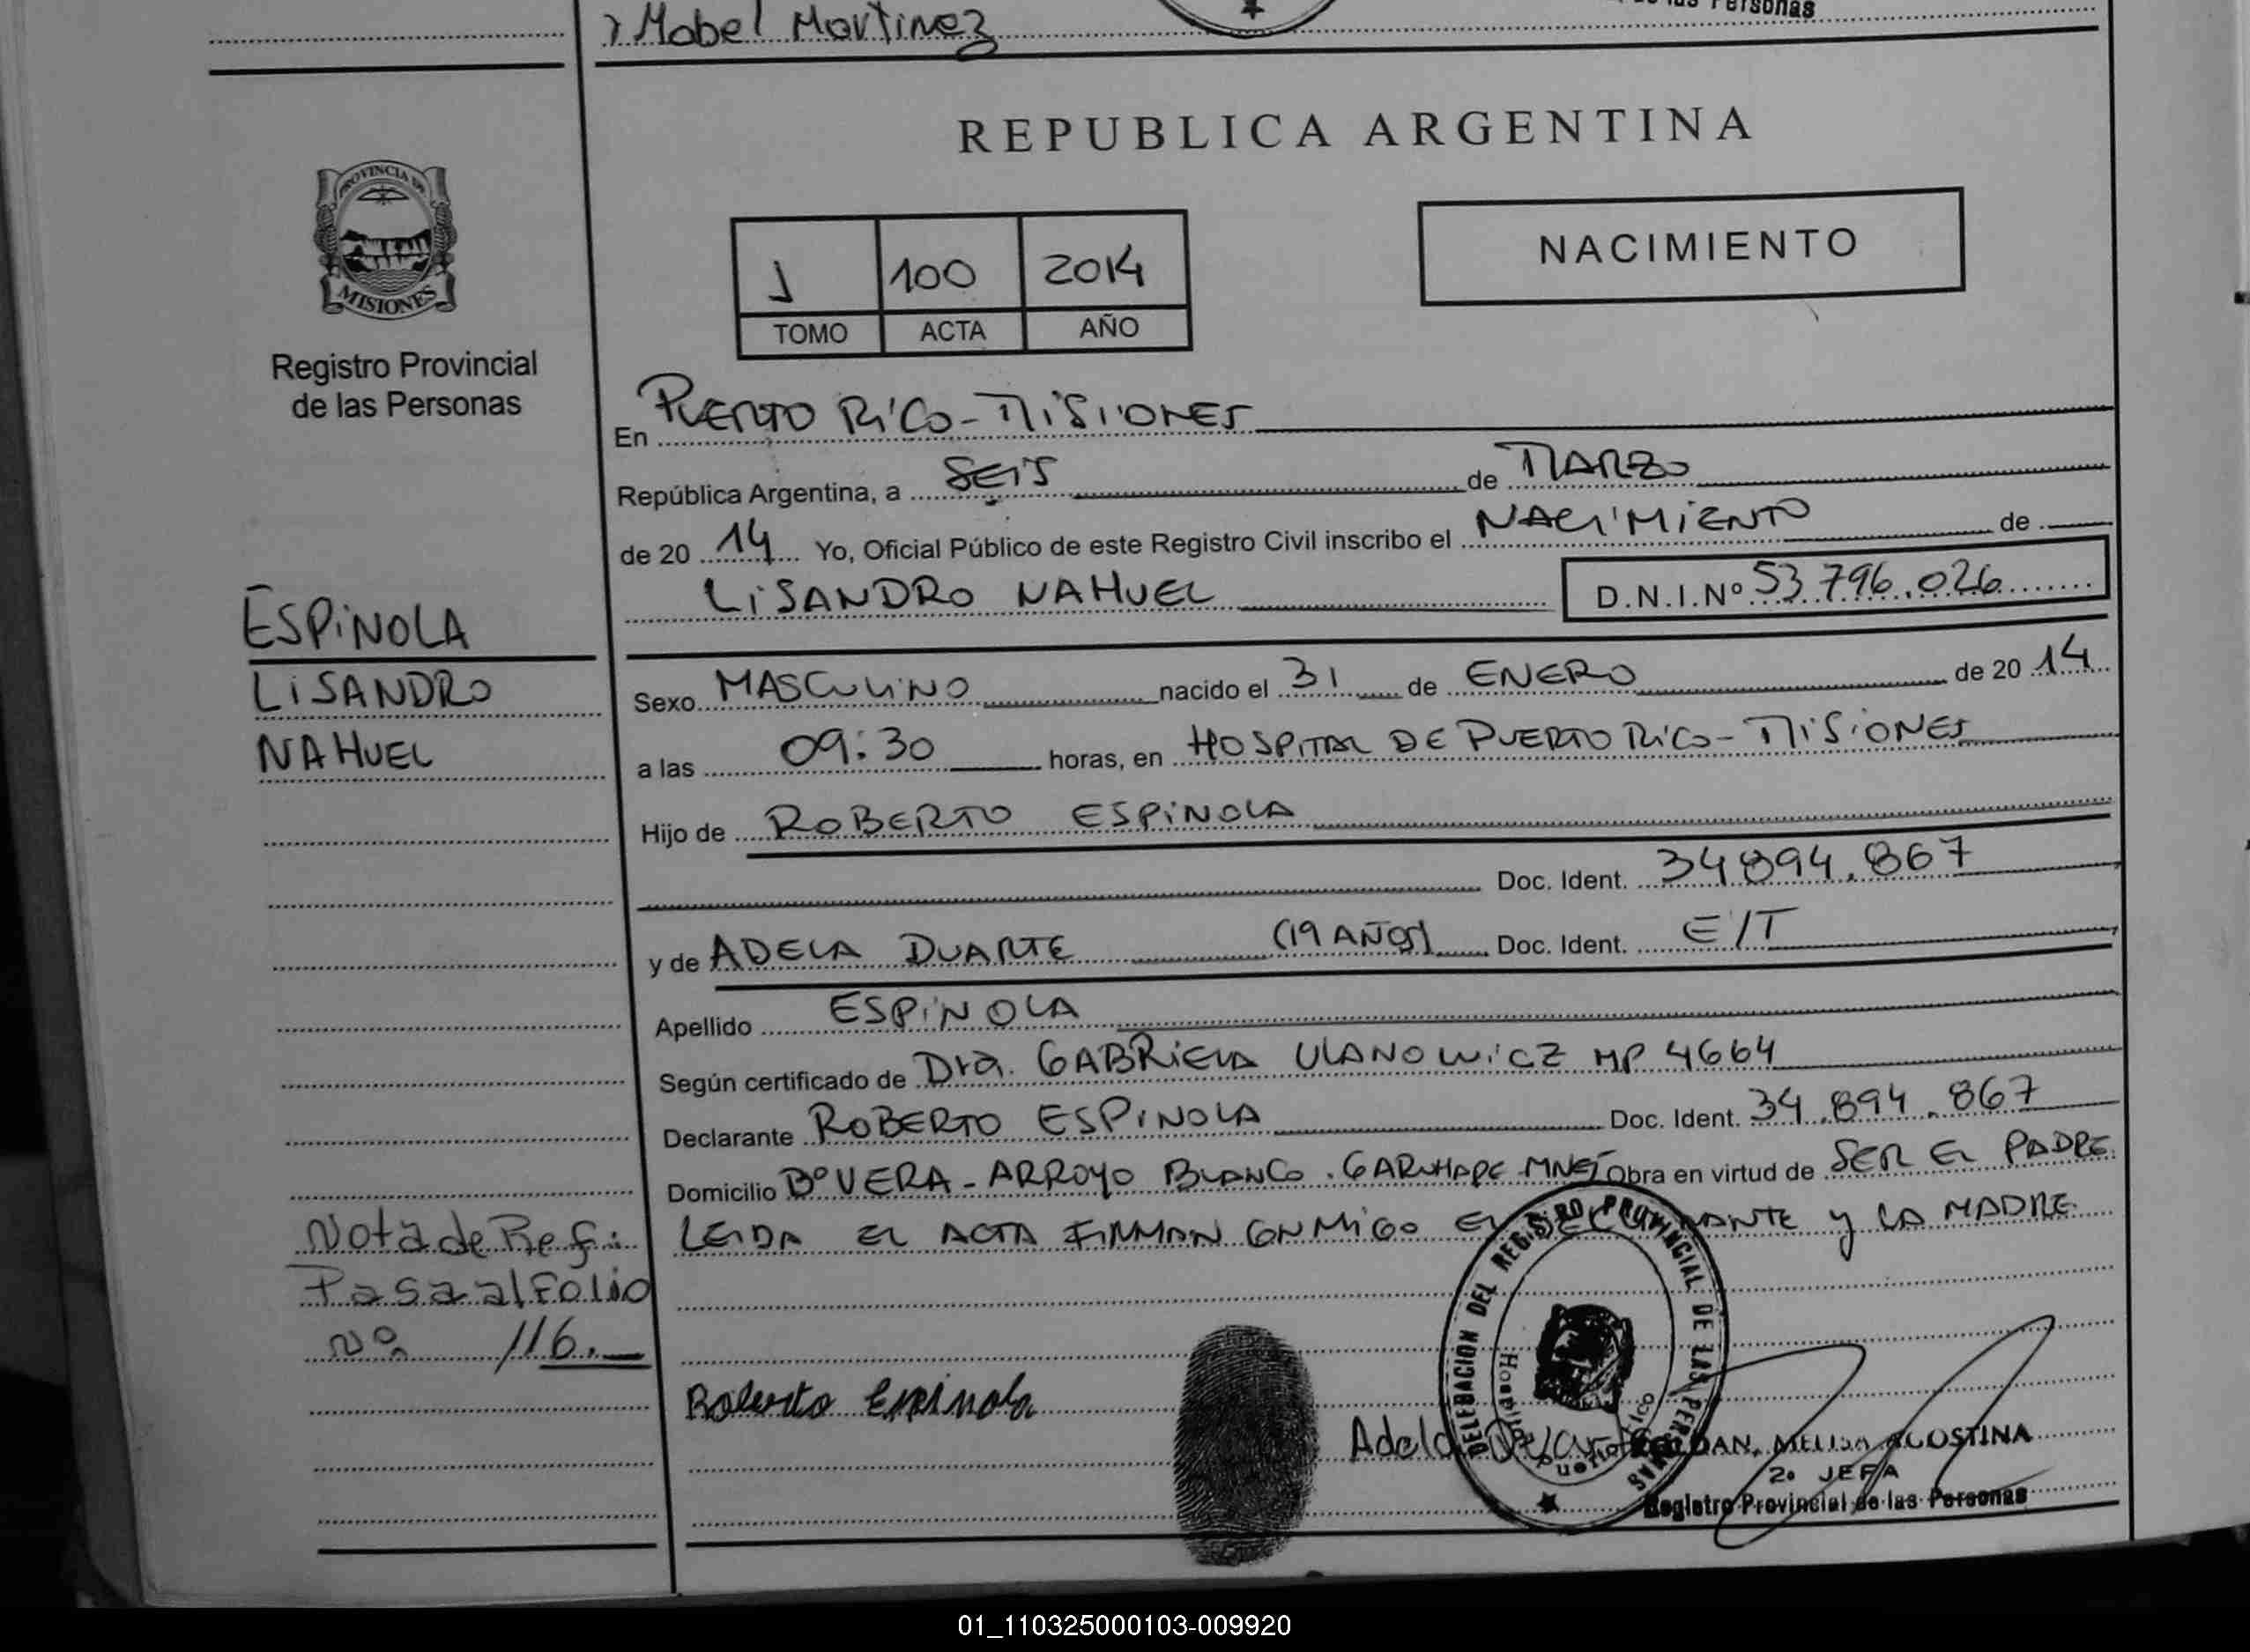 y Mabel Martinez
de las Personas
REPUBLICA ARGENTINA
PROVINCIA DE
MISIONES
Registro Provincial
de las Personas
J 100 2014
TOMO ACTA AÑO
NACIMIENTO
En PUERTO RICO - MISIONES
República Argentina, a SEIS de MARZO
de 20 14 Yo, Oficial Público de este Registro Civil inscribo el NACIMIENTO de
LISANDRO NAHUEL D.N.I.Nº 53.796.026
ESPINOLA
LISANDRO
NAHUEL
Sexo MASCULINO nacido el 31 de ENERO de 20 14
a las 09:30 horas, en HOSPITAL DE PUERTO RICO - MISIONES
Hijo de ROBERTO ESPINOLA
Doc. Ident. 34894.867
y de ADELA DUARTE (19 AÑOS) Doc. Ident. E/T
Apellido ESPINOLA
Según certificado de Dra. GABRIELA ULANOWICZ MP 4664
Declarante ROBERTO ESPINOLA Doc. Ident. 34.894.867
Domicilio Bº VERA - ARROYO BLANCO. GARUHAPE MNES Obra en virtud de SER EL PADRE
LEIDA EL ACTA FIRMAN CONMIGO EL DECLARANTE y LA MADRE
Nota de Ref:
Pasa al Folio
Nº 116.
Roberto Espinola
Adela Duarte
DELEGACION DEL REGISTRO PROVINCIAL DE LAS PERSONAS
Hospital Puerto Rico
MELISA AGOSTINA
2º JEFA
Registro Provincial de las Personas
01_110325000103-009920